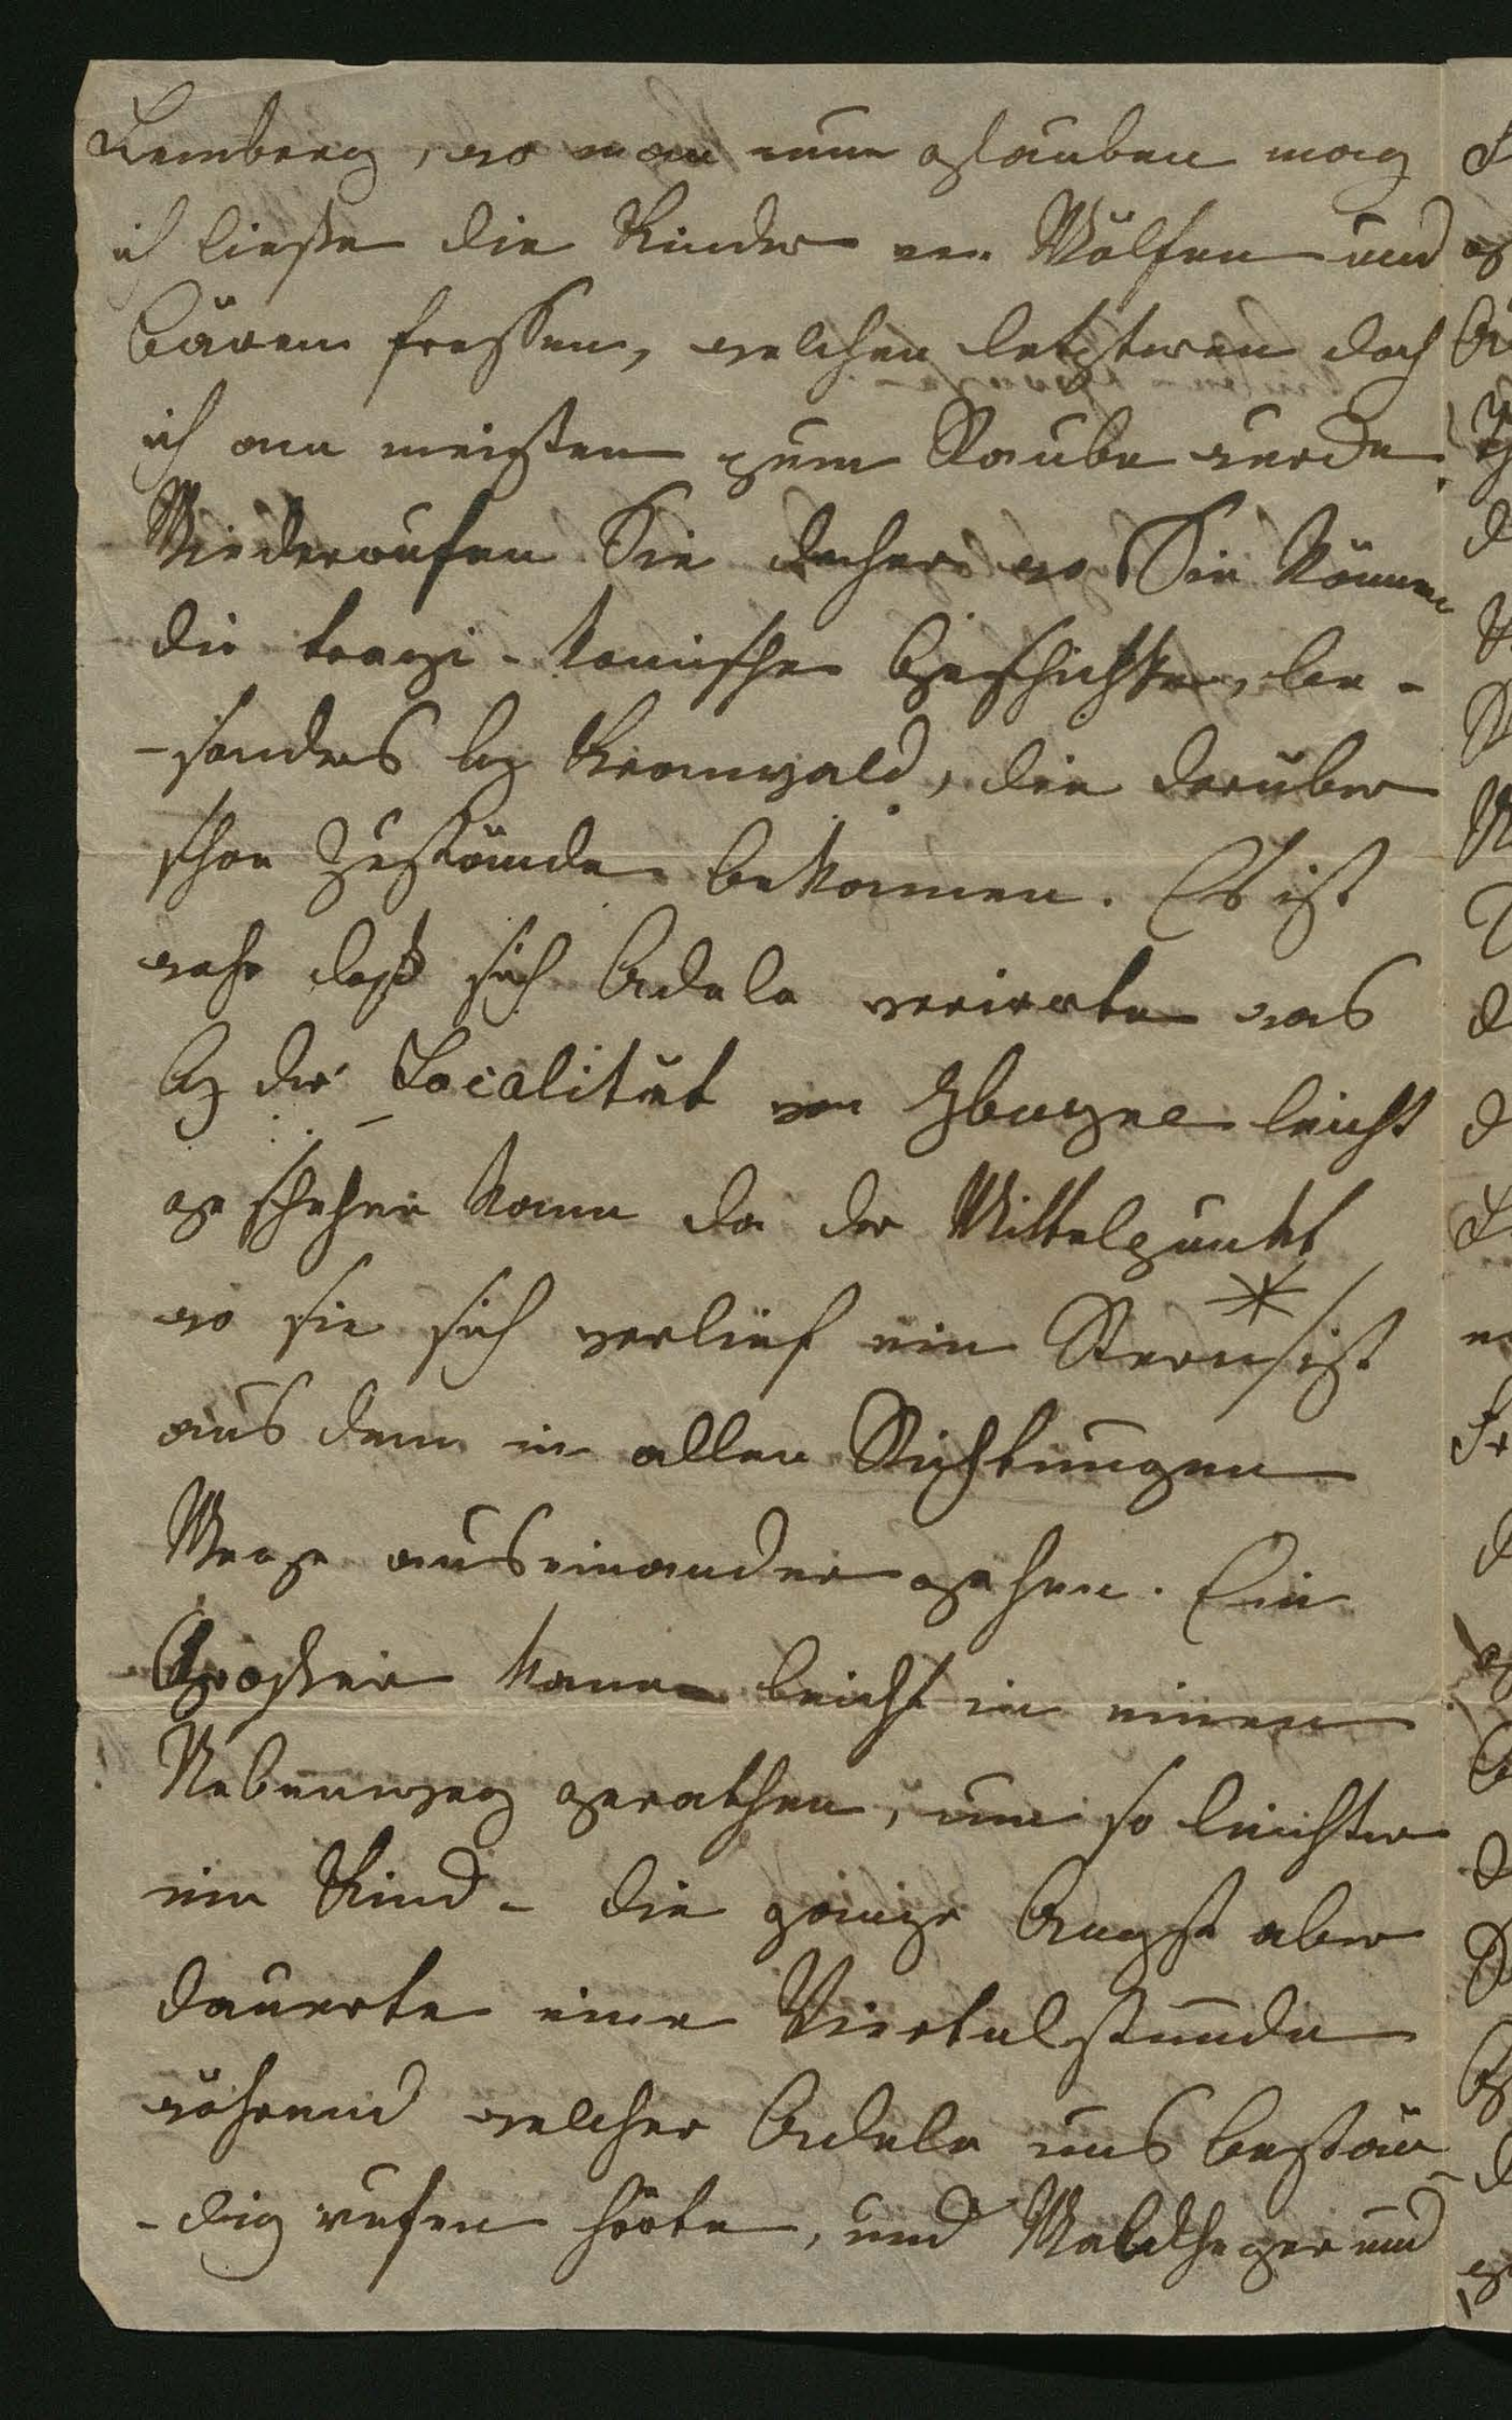 Lemberg, wo man nun glauben mag
ich ließe die Kinder von Wölfen und
Bären fressen, welchen letzteren doch
ich am meisten zum Raube werde.
Wiederrufen Sie daher wo Sie können
die tragi-komische Geschichte, be-
-sonders bey Kronwald, die darüber
schon Zustände bekommen. Es ist
wahr daß sich Adele verirrte was
bey der Localität von leicht
geschehen kann da der Mittelpunkt
wo sie sich verlief ein Stern * / ist
aus dem in allen Richtungen
Wege auseinander gehen. Ein
Großer kann leicht in einen
Nebenweg gerathen, um so leichter
ein Kind - die ganze Angst aber
dauerte eine Viertelstunde
während welcher Adele uns bestän
-dig rufen hörte, und Waldheger und